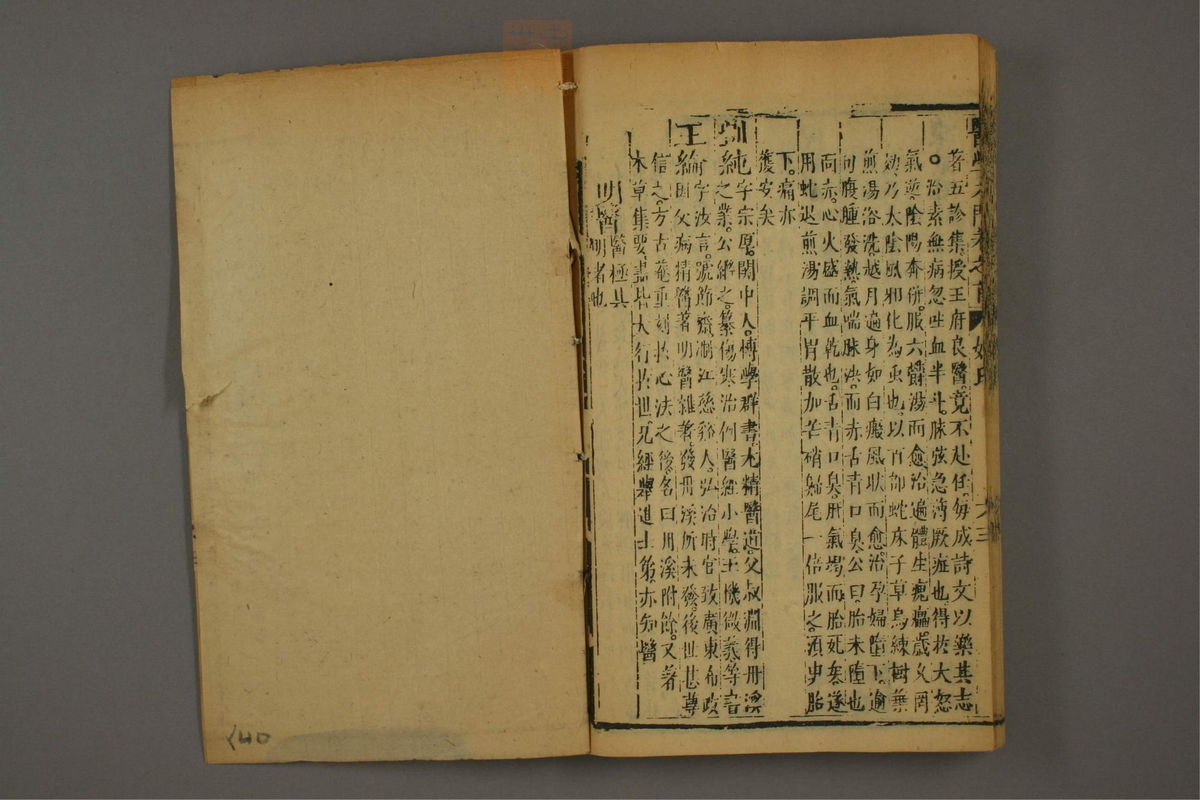 醫學入門卷之首 姓氏 六三
著五診集授王府良醫竟不赴任每成詩文以樂其志
○治素無病忽吐血半斗脉弦急薄厥症也得於大怒
氣逆陰陽奔併服六欝湯而愈治遍體生瘣癗歲久罔
効乃太陰風邪化為虫也以百部蛇床子草烏楝樹葉
煎湯浴洗越月遍身如白癜風狀而愈治孕婦墮下逾
旬腹腫發熱氣喘脉 而赤舌青口臭公曰胎未墮也
面赤心火盛而血乾也舌青口臭肝氣竭而胎死矣遂
用蛇退煎湯調平胃散加芒硝歸尾一倍服之須臾胎
下痛亦
獲安矣
劉純字宗厚関中人博學群書尤精醫道父叔淵得丹溪
之業公継之纂傷寒治例醫經小學玉機微義等書
王綸字汝言號節齋浙江慈谿人弘治時官致廣東布政
因父病精醫著明醫雜著發丹溪所未發後世甚尊
信之方古菴重刻於心法之後名曰丹溪附餘又著
本草集要書皆大行於世兄經舉進士第亦知醫
明醫 醫極其
明者也
140